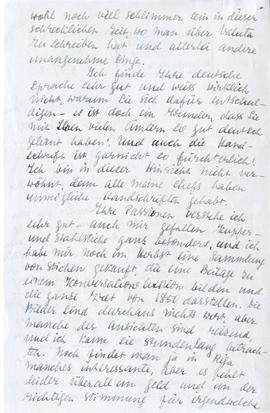 wohl noch viel schlimmer sein in dieser
schrecklichen Zeit, wo man über Valuta
zu schreiben hat und allerlei andere
unangenehme Dinge.
Ich finde Ihre deutsche
Sprache sehr gut und weiss wirklich
nicht, warum Sie sich dafür entschul-
digen - es ist doch ein Wunder, dass Sie
mit vielen Ämtern so gut deutsch
gelernt haben! Und auch die Hand-
schrift ist garnicht so fürchterlich!
Ich bin in dieser Hinsicht nicht ver-
wöhnt, denn alle meine Chefs haben
unmögliche Handschriften gehabt.
Ihre Passionen verstehe ich
sehr gut - auch mir gefallen Kupfer-
und Stahlstiche ganz besonders, und ich
habe mir noch im Herbst eine Sammlung
von Stichen gekauft, die eine Beilage zu
einem Konversationslexikon bilden und
die ganze Welt von 1850 darstellen. Die
Bilder sind durchaus nichts wert, aber
manche der Ansichten sind reizend
und ich kann sie stundenlang betrach-
ten. Noch findet man ja in Riga
manches interessante, aber es fehlt
leider überall an Geld und an der
richtigen Stimmung für irgendwelche